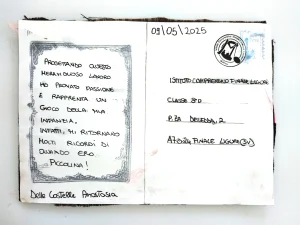 PROGETTANDO QUESTO
MERAVIGLIOSO LAVORO
HO PROVATO PASSIONE
E RAPPRENTA UN
GIOCO DELLA MIA
INFANZIA.
INFATTI, MI RITORNANO
MOLTI RICORDI DI
QUANDO ERO
PICCOLINA!
Delle Castelle Anastasia
09/05/2025
ISTITUTO COMPRENSIVO FINALE LIGURE
CLASSE 3°D
P.ZZA 2
FINALE LIGURE (SV)